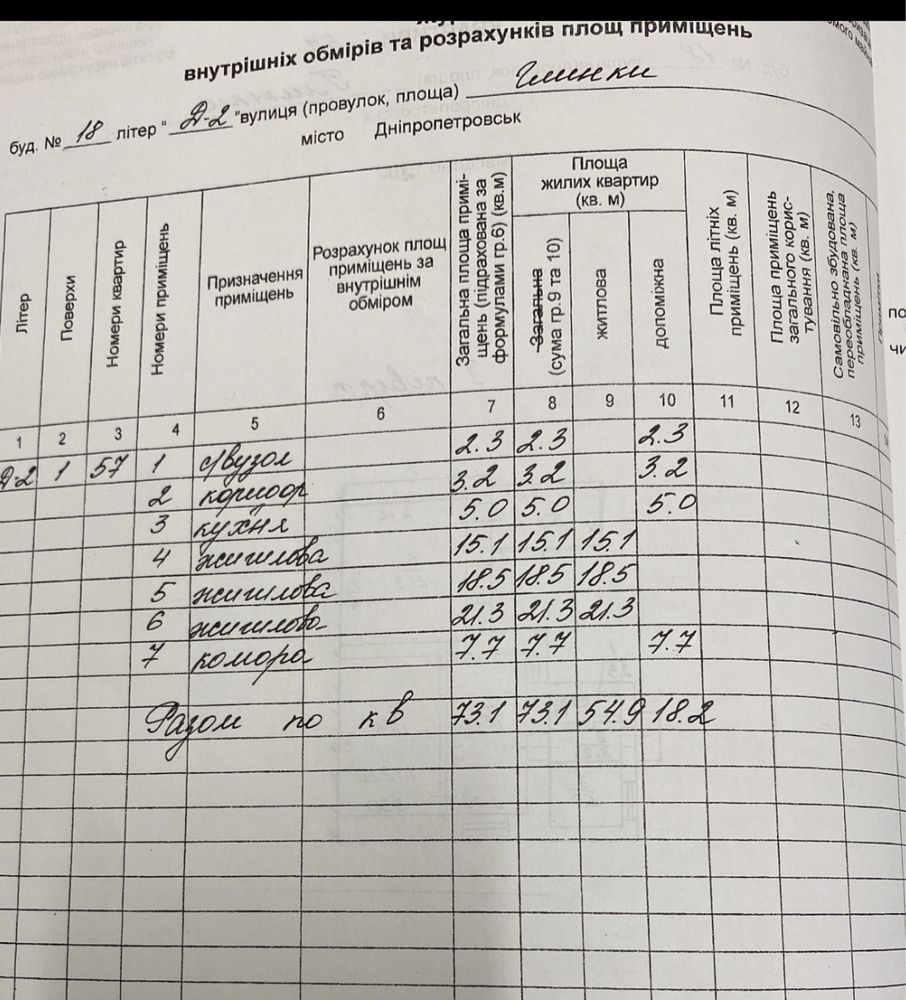 внутрішніх обмірів та розрахунків площ приміщень
буд. № 18 літер "Д-2" вулиця (провулок, площа) Глинки
місто Дніпропетровськ
Літер
Поверхи
Номери квартир
Номери приміщень
Призначення приміщень
Розрахунок площ приміщень за внутрішнім обміром
Загальна площа примі-
щень (підрахована за
формулами гр.6) (кв.м)
Площа
жилих квартир
(кв. м)
Загальна
(сума гр.9 та 10)
житлова
допоміжна
Площа літніх
приміщень (кв. м)
Площа приміщень
загального корис-
тування (кв. м)
Самовільно збудована,
переобладнана площа
приміщень (кв. м)
1 2 3 4 5 6 7 8 9 10 11 12 13
Д-2 1 57 1 с/вузол 2.3 2.3 2.3
2 коридор 3.2 3.2 3.2
3 кухня 5.0 5.0 5.0
4 житлова 15.1 15.1 15.1
5 житлова 18.5 18.5 18.5
6 житлова 21.3 21.3 21.3
7 комора 7.7 7.7 7.7
Разом по кв 73.1 73.1 54.9 18.2